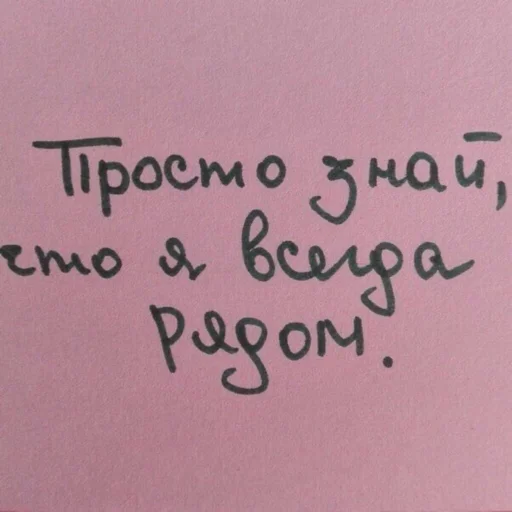 Просто знай,
что я всегда
рядом.